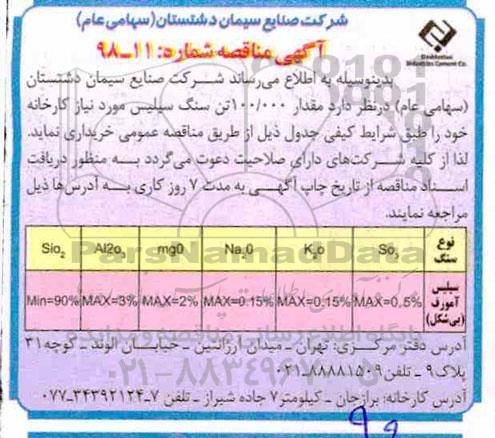 شرکت صنایع سیمان دشتستان (سهامی عام)
Dashtestan
Industries Cement Co.
آگهی مناقصه شماره: ۱۱_۹۸
بدینوسیله به اطلاع می‌رساند شرکت صنایع سیمان دشتستان
(سهامی عام) درنظر دارد مقدار ۱۰۰/۰۰۰تن سنگ سیلیس مورد نیاز کارخانه
خود را طبق شرایط کیفی جدول ذیل از طریق مناقصه عمومی خریداری نماید.
لذا از کلیه شرکت‌های دارای صلاحیت دعوت می‌گردد به منظور دریافت
اسناد مناقصه از تاریخ چاپ آگهی به مدت ۷ روز کاری به آدرس‌ها ذیل
مراجعه نمایند.
Sio2 Al2o3 mg0 Na20 K2o So3 نوع سنگ
Min=90% MAX=3% MAX=2% MAX=0.15% MAX=0.15% MAX=0.5% سیلیس آمورف (بی‌شکل)
ParsNamadData
آدرس دفتر مرکزی: تهران ـ میدان آرژانتین ـ خیابان الوند ـ کوچه۳۱
پلاک ۹ ـ تلفن ۸۸۸۸۱۵۰۹ـ۰۲۱
۰۲۱-۸۸۳۴۹۶۷۰-۵
آدرس کارخانه: برازجان ـ کیلومتر۷ جاده شیراز ـ تلفن ۷ـ۳۴۳۹۲۱۲۴ـ۰۷۷